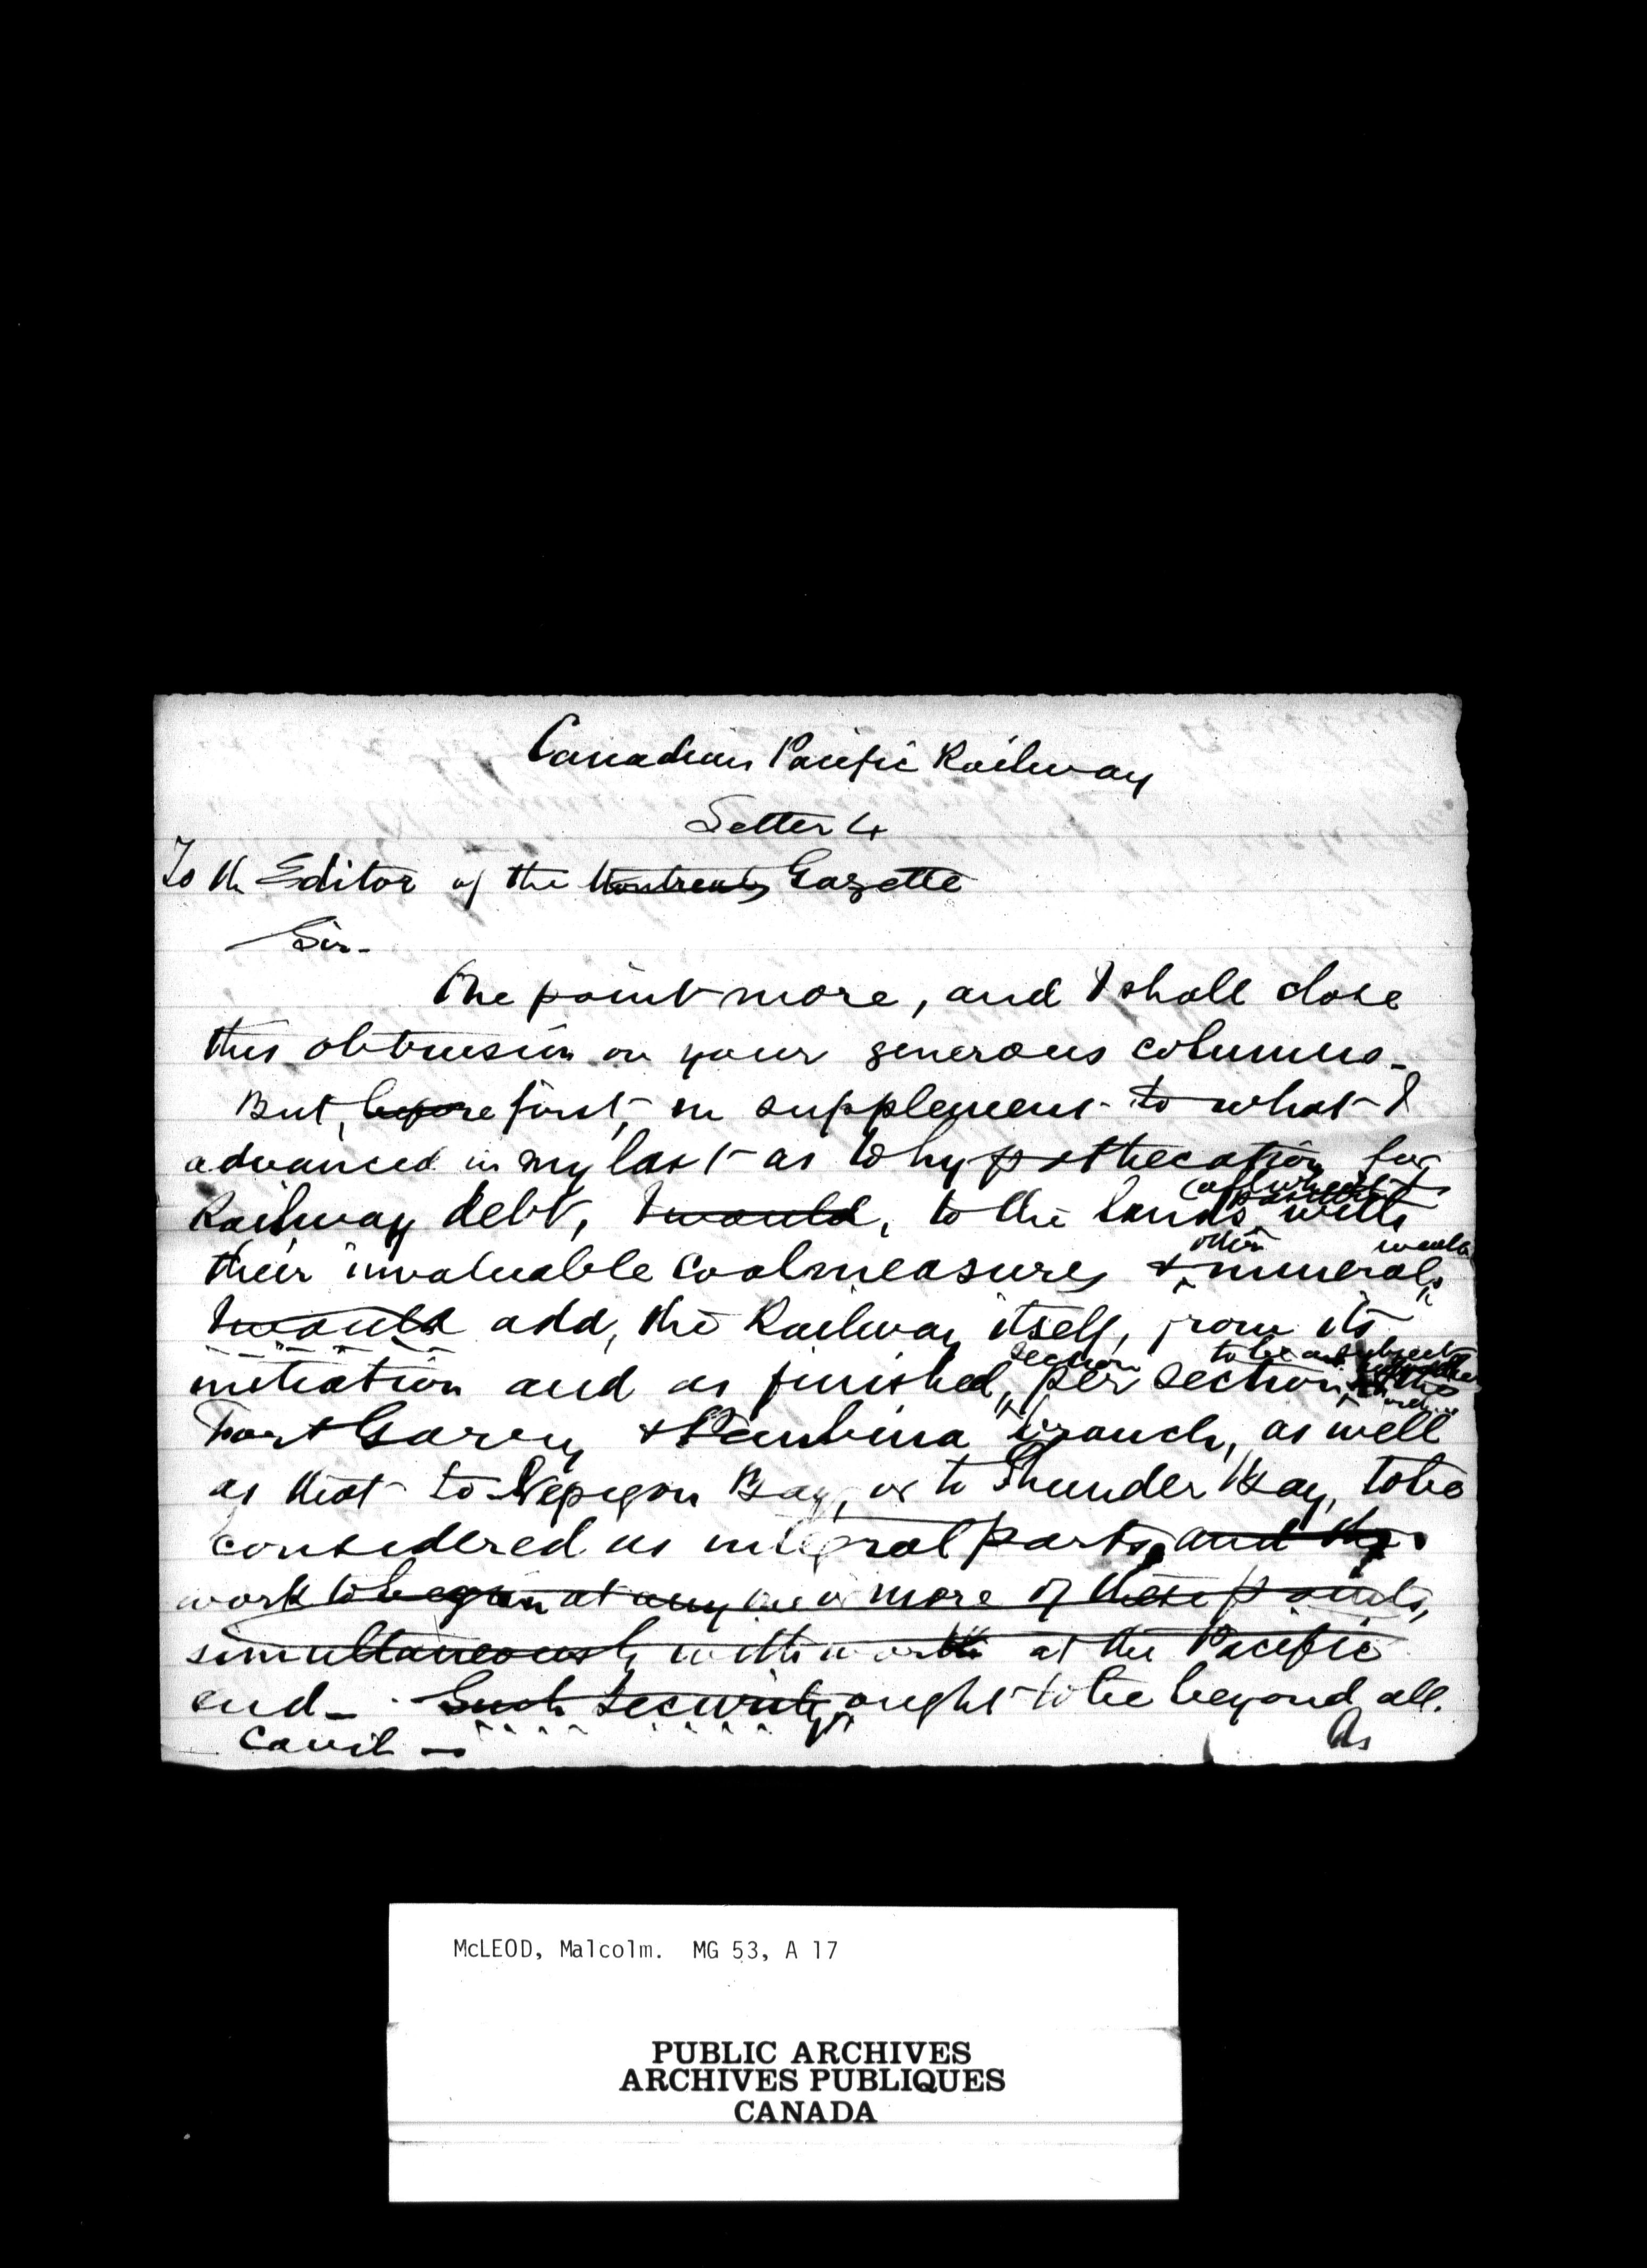 Canadian Pacific Railway
Letter 4
To the Editor of the Montreal Gazette
Sir-
One point more, and I shall close
this obtrusion on your generous columns.
But, before first, in supplement to what I
advanced in my last as to hypothecation for
Railway debt, I would, to the lands with
their invaluable coal measures & other minerals
I would add, the Railway itself, from its
initiation and as finished, section per section,
to be subject
Fort Garry & Pembina branch, as well
as that to Nepigon Bay, or to Thunder Bay, to be
considered as integral parts, and the
work to begin at any one or more of these points,
simultaneously with work at the Pacific
end - Such security ought to be beyond all
cavil -
As
McLEOD, Malcolm. MG 53, A 17
PUBLIC ARCHIVES
ARCHIVES PUBLIQUES
CANADA